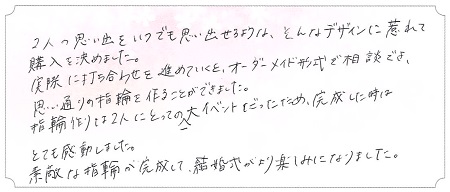 2人の思い出をいつでも思い出せるような、そんなデザインに惹れて
購入を決めました。
実際に打ち合わせを進めていくと、オーダーメイド形式で相談でき、
思い通りの指輪を作ることができました。
指輪作りは2人にとっての大イベントだったため、完成した時は
とても感動しました。
素敵な指輪が完成して、結婚式がより楽しみになりました。